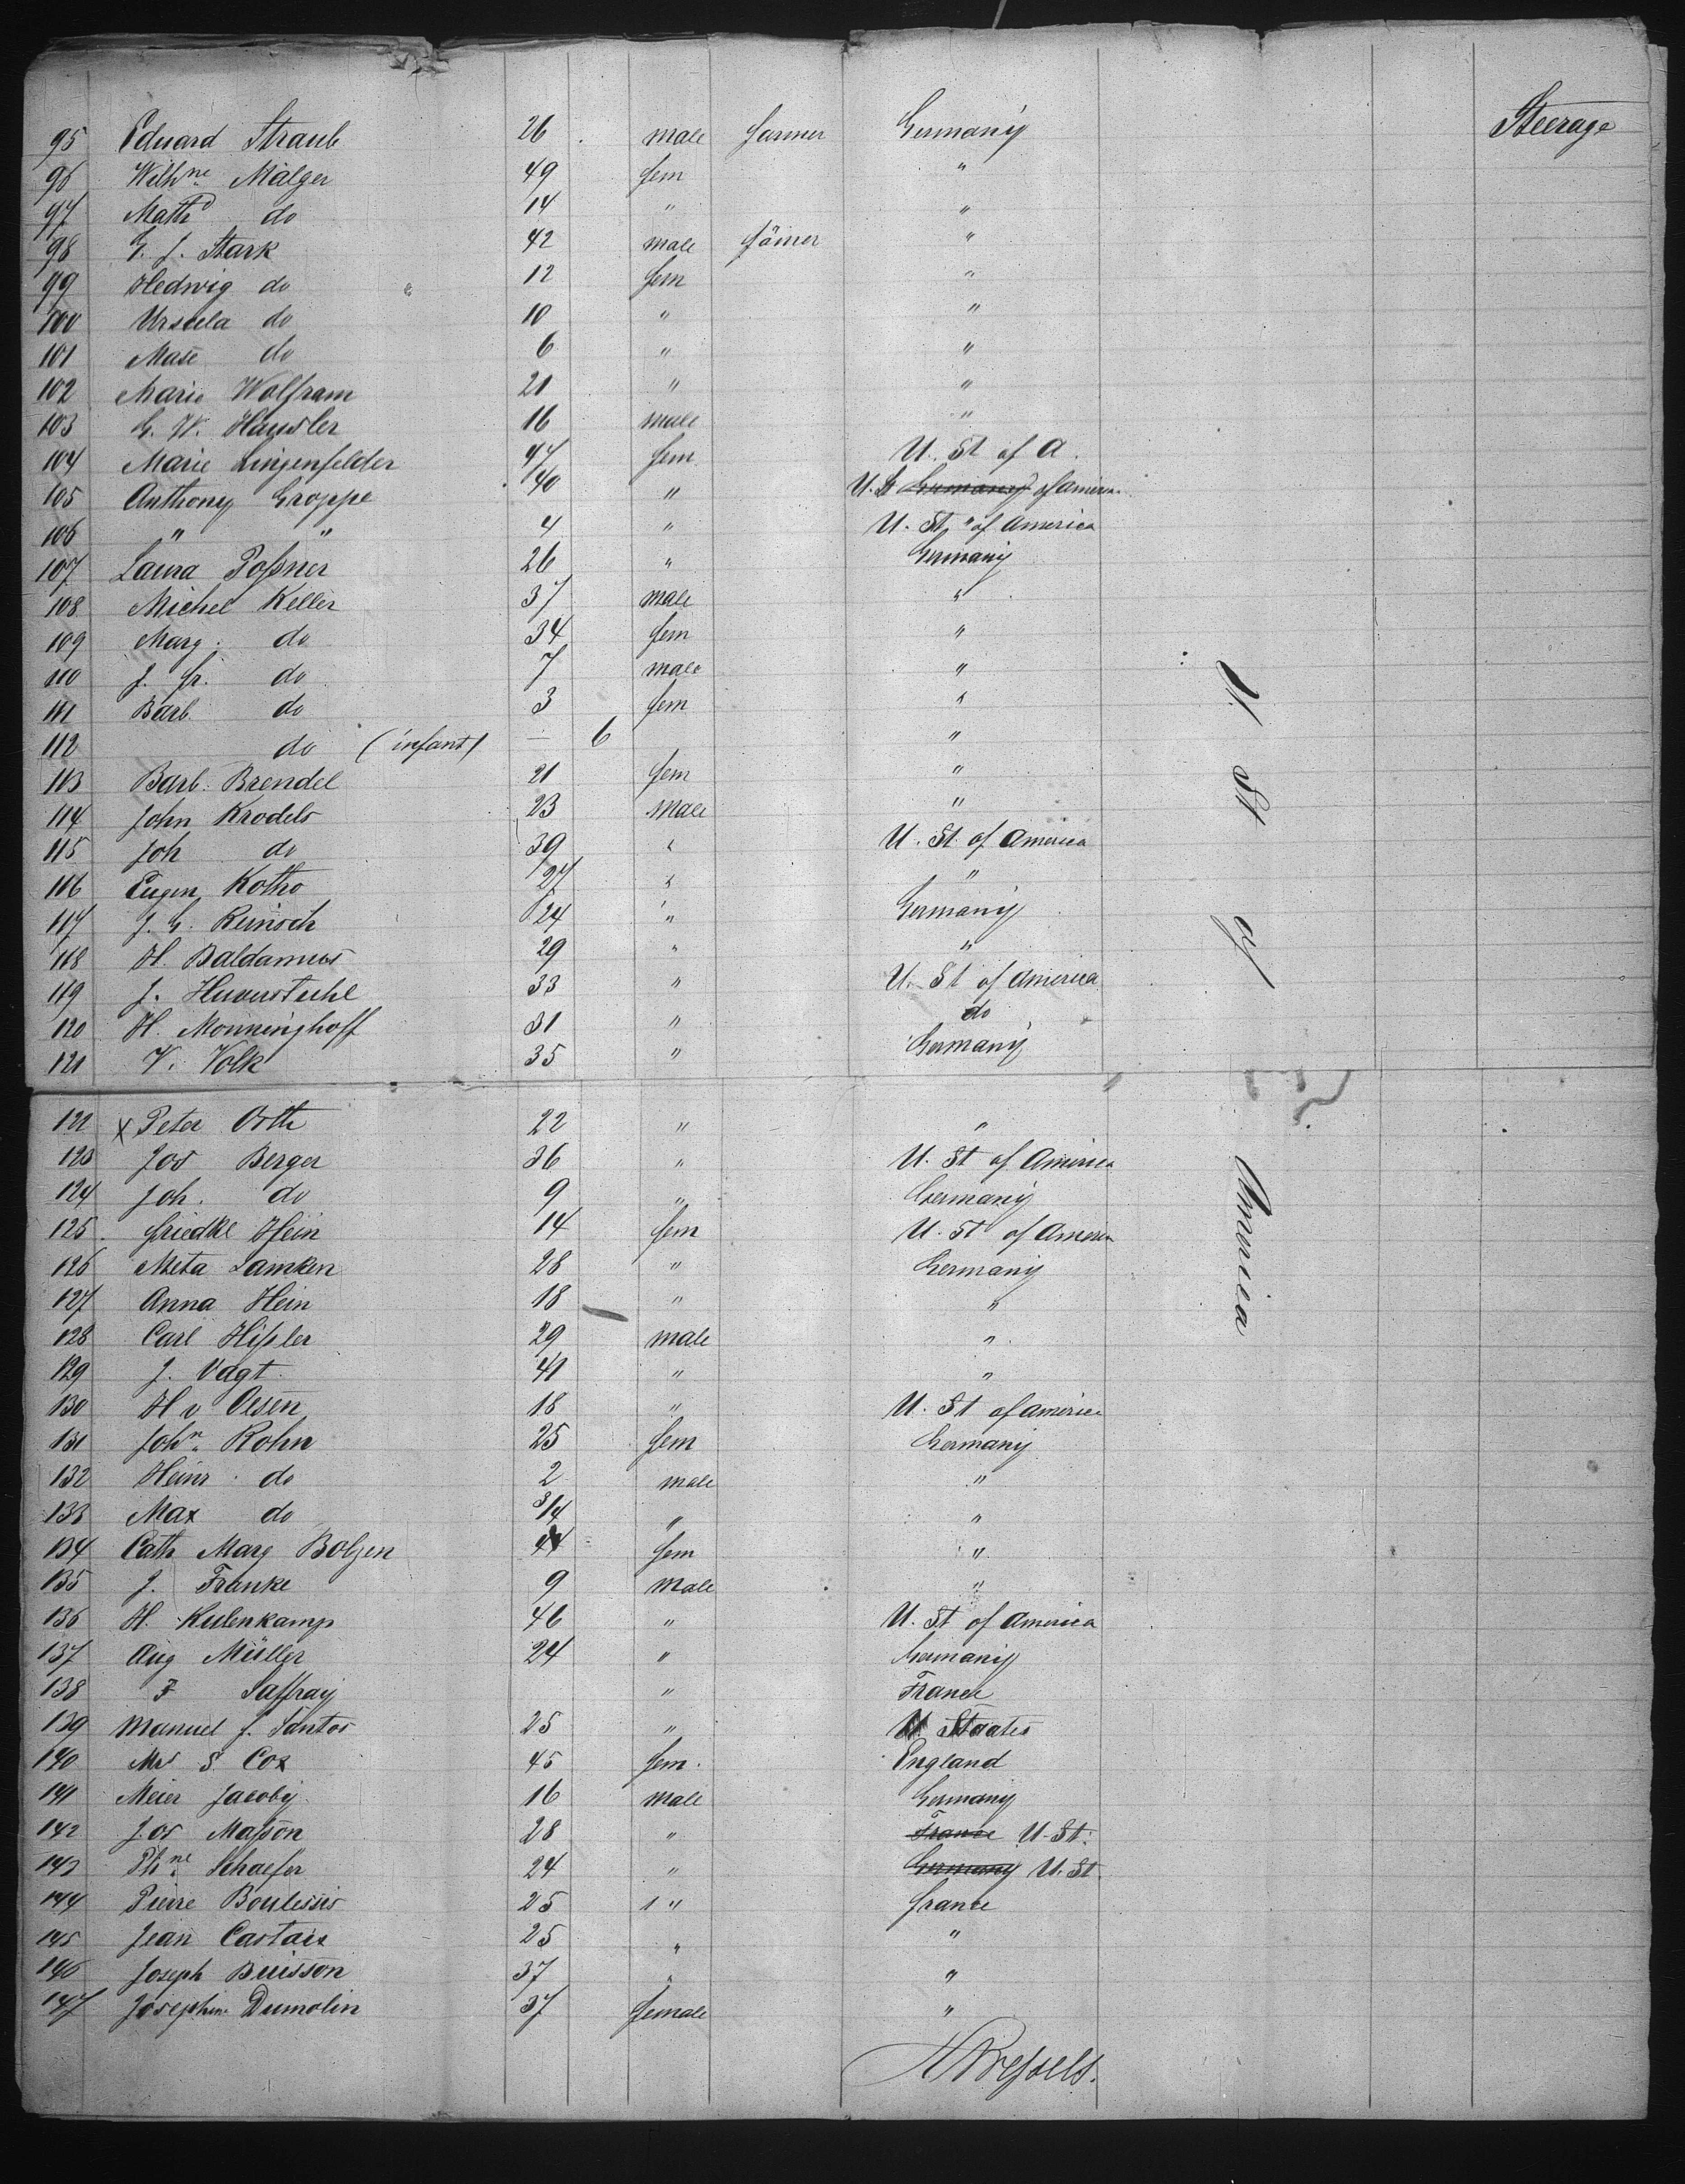 Steerage
95 Eduard Straub 26 male farmer Germany
96 Wilhne Mälger 49 fem "
97 Mathd do 14 " "
98 G. J. Stark 42 male "
99 Hedwig do 12 fem "
100 Ursula do 10 " "
101 do 6 " "
102 Marie Wolfram 21 " "
103 G. W. Hausler 16 male "
104 Marie Lingenfelder 47 fem U. St of A.
105 Anthony Groppe 40 " U. St Germany of America
106 " " 4 " U. St. " of America
107 Laura Poßner 26 " Germany
108 Michel Keller 37 male "
109 Marg. do 34 fem "
110 J. Fr. do 7 male "
111 Barb do 3 fem "
112 do (infant) — 6 "
113 Barb. Brendel 21 fem "
114 John Krodels 23 male "
115 Joh do 39 " U. St. of America
116 Eugen Kotho 27 " "
117 J. G. Reinsch 24 " Germany
118 H. Baldamus 29 " "
119 J. 33 " U. St of America
120 H. Monninghoff 31 " do
121 V. Volk 35 " Germany
122 x Peter Orth 22 " "
123 Jos Berger 36 " U. St of America
124 Joh. do 9 " Germany
125 Friedke Hein 14 fem U. St of America
126 Meta Lamken 28 " Germany
127 Anna Hein 18 " "
128 Carl Hißler 29 male "
129 J. Vagt 41 " "
130 H v Oesen 18 " U. St of america
131 Johne Rohn 25 fem Germany
132 Heinr. do 2 male "
133 Max do 3/4 " "
134 Cath Marg Bolzen fem "
135 J. Franke 9 male "
136 H. Kulenkamp 46 " U. St of America
137 Aug Müller 24 " Germany
138 F Saffray " France
139 Manuel J. Santos 25 " U. Staates
140 Mrs S. Cox 45 fem. England
141 Meier Jacoby 16 male Germany
142 Jos Maßon 28 " France U. St.
143 Phne Schaefer 24 " Germany U. St.
144 Pierre Boulessis 25 " France
145 Jean Castaix 25 " "
146 Joseph Buisson 37 " "
147 Josephine Dumolin 37 female "
U. St of America